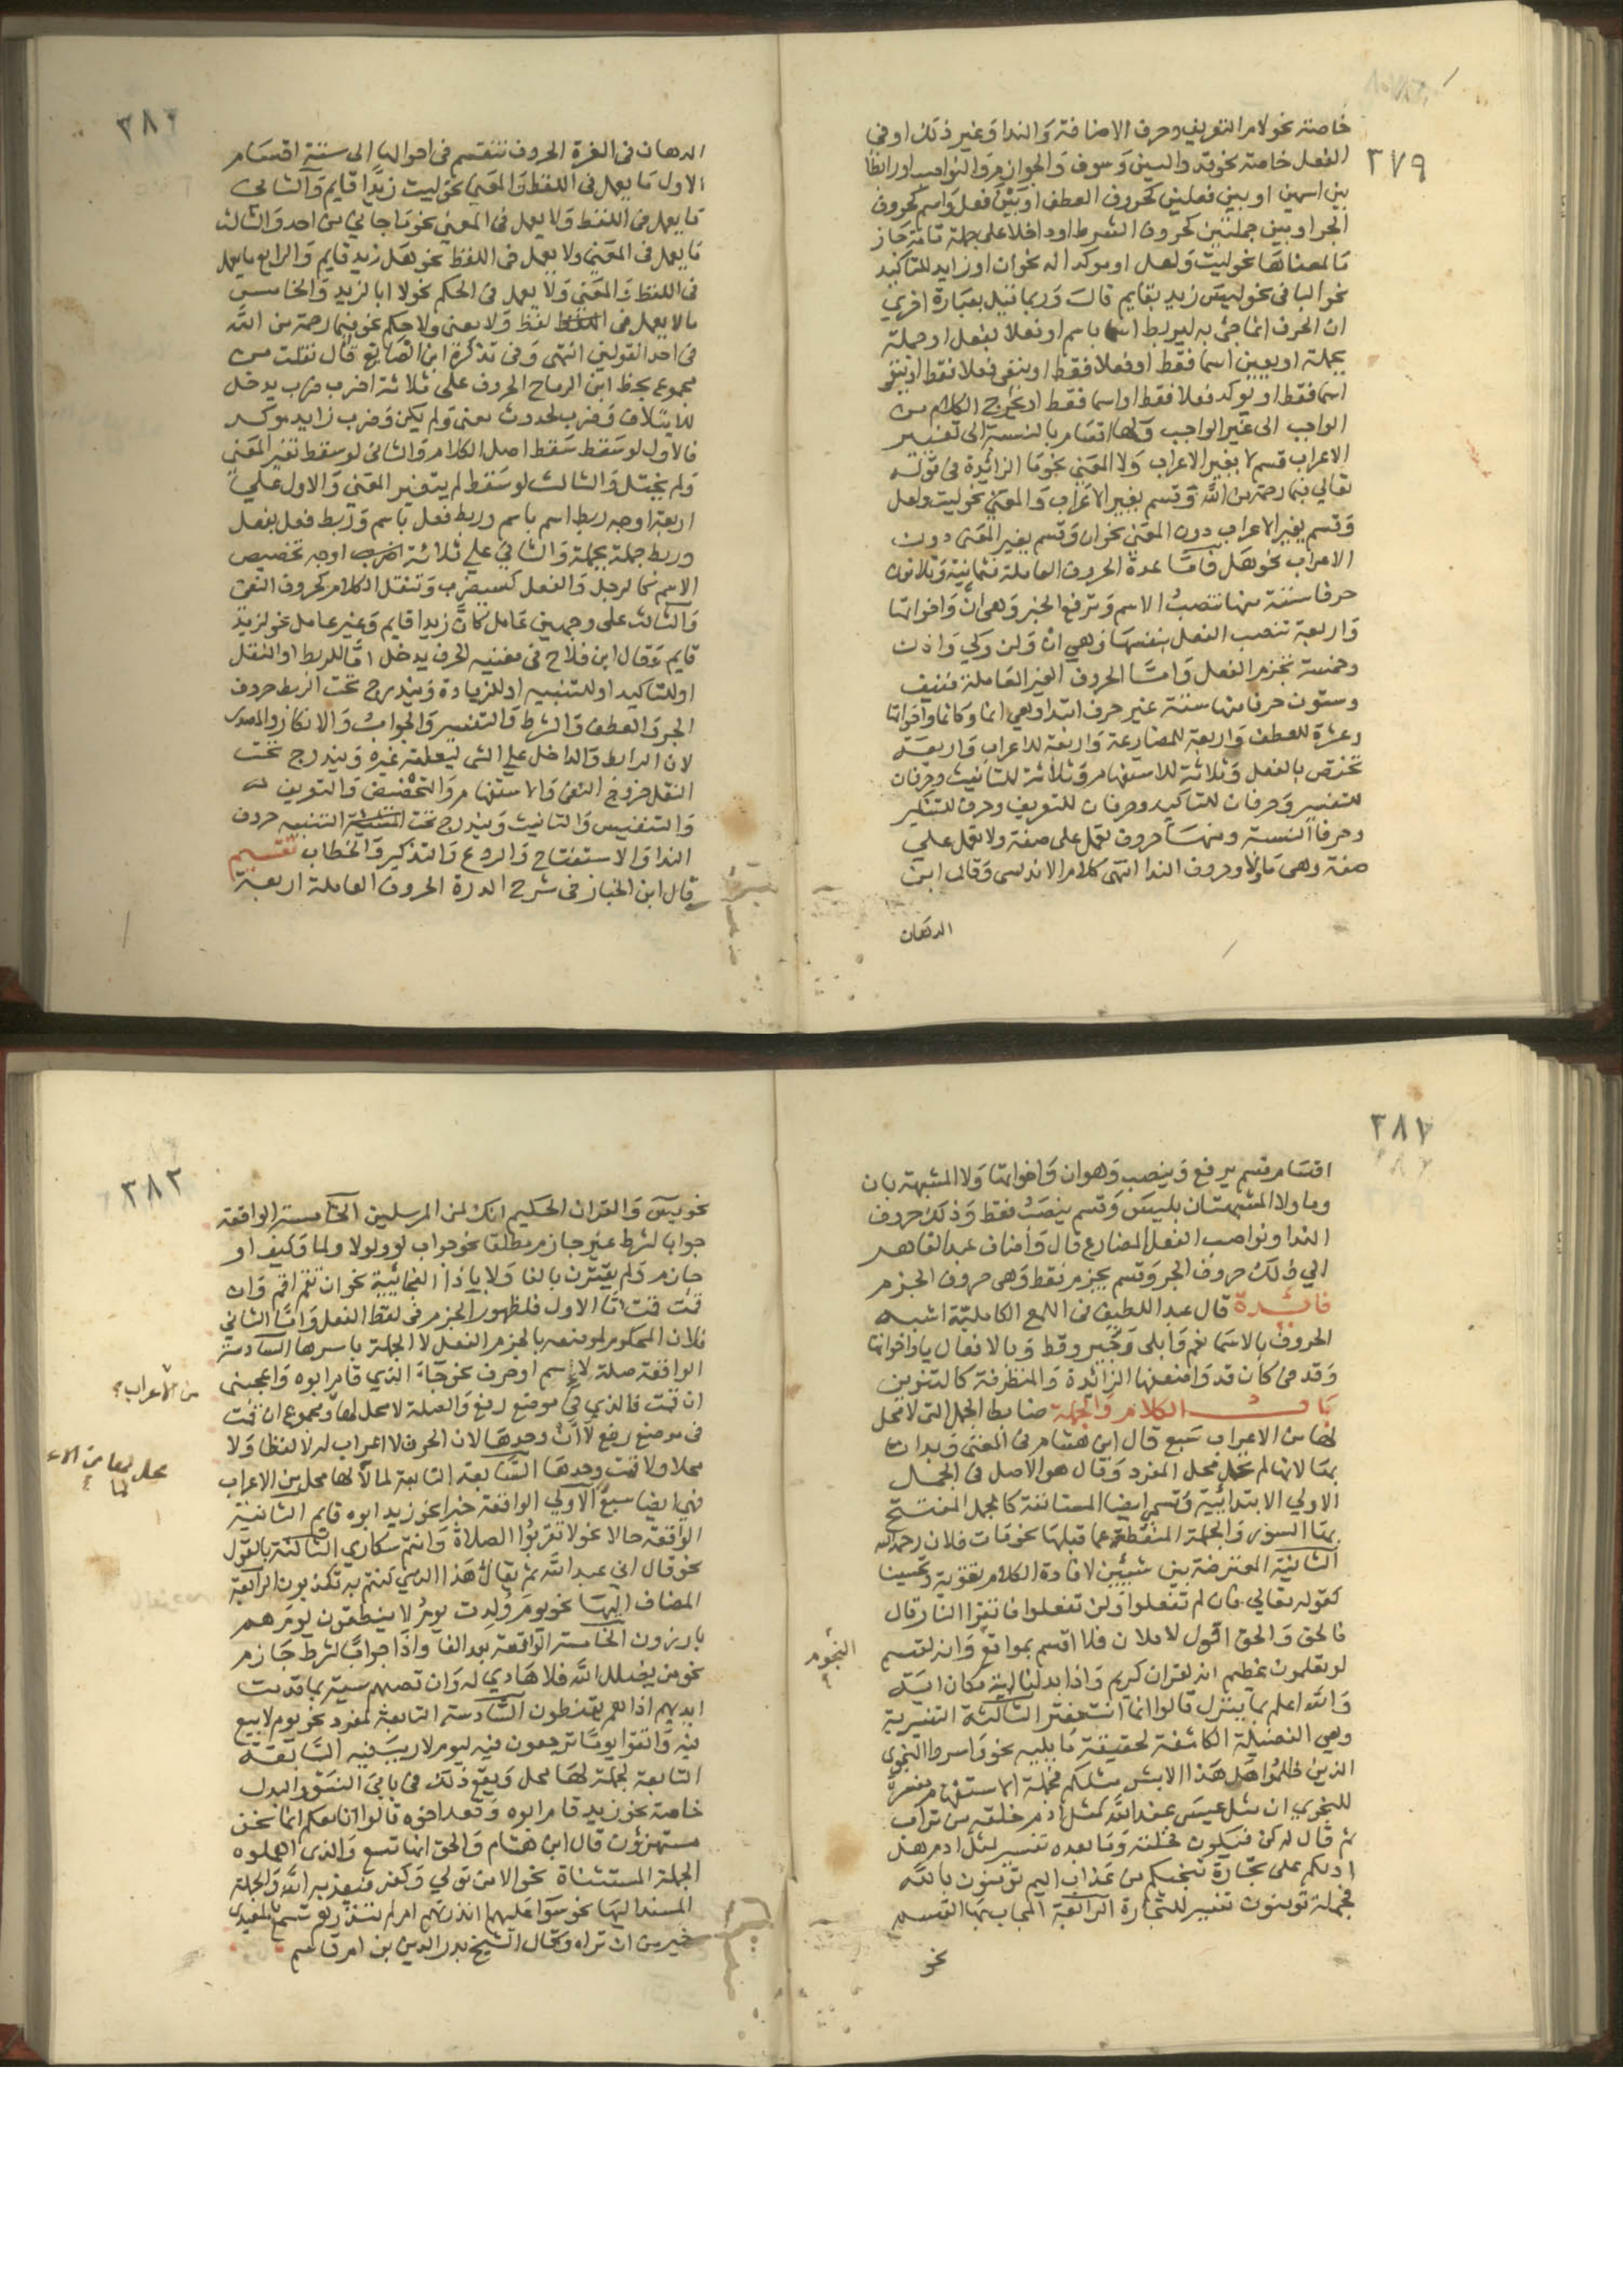 ٣٧٩
خاصة نحو لام التعريف وحرف الاضافة والندا وغير ذلك او في
الفعل خاصة نحو قد والسين وسوف والجوازم والنواصب او رابطا
بين اسمين او بين فعلين كحروف العطف او بين فعل واسم كحروف
الجر او بين جملتين كحروف الشرط او داخلا على جملة تامة
لمعناها نحو ليت ولعل او موكدا له نحو ان او زايد للتاكيد
نحو البا في نحو ليس زيد بقايم قال وربما قيل بعبارة اخري
ان الحرف انما جئ به ليربط اسما باسم او فعلا بفعل او جملة
بجملة او يعين اسما فقط او فعلا فقط او ينفي فعلا فقط او ينفي
اسما فقط او يوكد فعلا فقط او اسما فقط او يخرج الكلام من
الواجب الى غير الواجب ولها اقسام بالنسبة الى تغيير
الاعراب قسم لا يغير الاعراب ولا المعني نحو ما الزائدة في قوله
تعالي فبما رحمة من الله وقسم يغير الاعراب والمعني نحو ليت ولعل
وقسم يغير الاعراب دون المعني نحو ان وقسم يغير المعنى دون
الاعراب نحو هل فاما عدة الحروف العاملة فثمانية وثلاثون
حرفا ستة منها تنصب الاسم وترفع الخبر وهي ان واخواتها
واربعة تنصب الفعل بنفسها وهي ان ولن وكي واذن
وخمسة تجزم الفعل واما الحروف الغير العاملة فنيف
وستون حرفا منها ستة غير حرف ابتدا وهي انما وكانما واخواتها
وعشرة للعطف واربعة للمضارعة واربعة للاعراب واربعة
تختص بالفعل وثلاثة للاستفهام وثلاثة للتانيث وحرفان
للتفسير وحرفان للتاكيد وحرفان للتعريف وحرف للتنكير
وحرفا النسبة ومنها حروف تعمل على صفة ولا تعمل علي
صفة وهي ما ولا وحروف الندا انتهى كلام الاندلسي وقال ابن
الدهان
الدهان في الغرة الحروف تنقسم في احوالها الى ستة اقسام
الاول ما يعمل في اللفظ والمعني نحو ليت زيدا قايم والثاني
ما يعمل في اللفظ ولا يعمل في المعني نحو ما جاني من احد والثالث
ما يعمل في المعني ولا يعمل في اللفظ نحو هل زيد قايم والرابع ما يعمل
في اللفظ والمعني ولا يعمل في الحكم نحو لا ابا لزيد والخامس
مالا يعمل في لفظ ولا معنى ولا حكم نحو فبما رحمة من الله
في احد القولين انتهى وفي تذكرة ابن الصايغ قال نقلت من
مجموع بخط ابن الرماح الحروف على ثلاثة اضرب ضرب يدخل
للايتلاف وضرب لحدوث معنى لم يكن وضرب زايد موكد
فالاول لو سقط سقط اصل الكلام والثاني لو سقط تغير المعني
ولم يختل والثالث لو سقط لم يتغير المعني والاول علي
اربعة اوجه ربط اسم باسم وربط فعل باسم وربط فعل بفعل
وربط جملة بجملة والثاني علي ثلاثة اوجه تخصيص
الاسم كالرجل والفعل كسيضرب وتنقل الكلام كحروف النفي
والثالث على وجهين عامل كان زيدا قايم وغير عامل نحو لزيد
قايم وقال ابن فلاح في مغنيه الحرف يدخل اما للربط او النقل
او للتاكيد او للتنبيه او للزيادة ويندرج تحت الربط حروف
الجر والعطف والشرط والتفسير والجواب والانكار والمصدر
لان الرابط والداخل علي الشي ليعلقه بغيره ويندرج تحت
النقل حروف النفي والاستفهام والتخصيص والتعريف
والتنفيس والتانيث ويندرج تحت التنبيه حروف
الندا والاستفتاح والردع والتذكير والخطاب تقسيم
قال ابن الخباز في شرح الدرة الحروف العاملة اربعة
اقسام قسم يرفع وينصب وهو ان واخواتها ولا المشبهة بان
وما ولا المشبهتان بليس وقسم ينصب فقط وذلك حروف
الندا ونواصب الفعل المضارع قال واضاف عبد القاهر
الي ذلك حروف الجر وقسم يجزم فقط وهي حروف الجزم
فائدة قال عبد اللطيف في اللمع الكاملية اشبه
الحروف بالاسما نعم وبلى وجير وقط وبالافعال يا واخواتها
وقد في كان قد واضعفها الزائدة والمتطرفة كالتنوين
باب الكلام والجملة ضابط الجمل التي لا محل
لها من الاعراب سبع قال ابن هشام في المغني وبدات
بها لانها لم تحل محل المفرد وقال هو الاصل في الجمل
الاولي الابتدائية وتسمي ايضا المستانفة كالجمل المفتتح
بها السور والجملة المنقطعة عما قبلها نحو مات فلان رحمه الله
الثانية المعترضة بين شيئين لافادة الكلام تقوية وتحسينا
كقوله تعالي فان لم تفعلوا ولن تفعلوا فاتقوا النار قال
فالحق والحق اقول لاملان فلا اقسم بمواقع وانه لقسم
النجوم
لو تعلمون عظيم انه لقران كريم واذا بدلنا اية مكان اية
والله اعلم بما ينزل قالوا انما انت مفتر الثالثة التفسيرية
وهي الفضيلة الكاشفة لحقيقة ما يليه نحو واسروا النجوى
الذين ظلموا هل هذا الا بشر مثلكم فجملة الاستفهام مفسرة
للنجوي ان مثل عيسى عند الله كمثل ادم خلقه من تراب
ثم قال له كن فيكون فخلقه وما بعده تفسير لمثل ادم هل
ادلكم على تجارة تنجيكم من عذاب اليم تؤمنون بالله
فجملة تومنون تفسير للتجارة الرابعة المجاب بها القسم
نحو
٣٨٢
نحو يس والقران الحكيم انك لمن المرسلين الخامسة الواقعة
جوابا لشرط غير جازم مطلقا نحو جواب لو ولولا ولما وكيف او
جازم ولم يقترن بالفا ولا باذا الفجائية نحو ان تقم اقم وان
قمت قمت اما الاول فلظهور الجزم في لفظ الفعل واما الثاني
فلان المحكوم لموضعه بالجزم الفعل لا الجملة باسرها السادسة
الواقعة صلة لاسم او حرف نحو جاء الذي قام ابوه واعجبني
ان قمت فالذي في موضع رفع والصلة لا محل لها ومجموع ان قمت
من الاعراب
في موضع رفع لا ان وحدها لان الحرف لا اعراب له لا لفظا ولا
محلا ولا قمت وحدها السابعة التابعة لما لا لها محل من الاعراب
فهي ايضا سبع الاولي الواقعة خبرا نحو زيد ابوه قايم الثانية
الواقعة حالا نحو لا تقربوا الصلاة وانتم سكاري الثالثة بالقول
نحو قال اني عبد الله ثم يقال هذا الذي كنتم به تكذبون الرابعة
المضاف اليها نحو يوم ولدت يوم لا ينطقون يوم هم
بارزون الخامسة الواقعة بعد الفا واذا جوابا لشرط جازم
نحو من يضلل الله فلا هادي له وان تصبهم سيئة بما قدمت
ايديهم اذا هم يقنطون السادسة التابعة لمفرد نحو يوم لا بيع
فيه واتقوا يوما ترجعون فيه ليوم لا ريب فيه السابعة
التابعة لجملة لها محل ويقع ذلك في بابي النسق والبدل
خاصة نحو زيد قام ابوه وقعد اخوه قالوا انا معكم انما نحن
مستهزؤن قال ابن هشام والحق انها تسع والذي اهملوه
الجملة المستثناة نحو الا من تولي وكفر فيعذبه الله والجملة
المسند اليها نحو سوا عليهم اانذرتهم ام لم تنذرهم تسمع بالمعيدي
خير من ان تراه وقال الشيخ بدر الدين بن ام قاسم